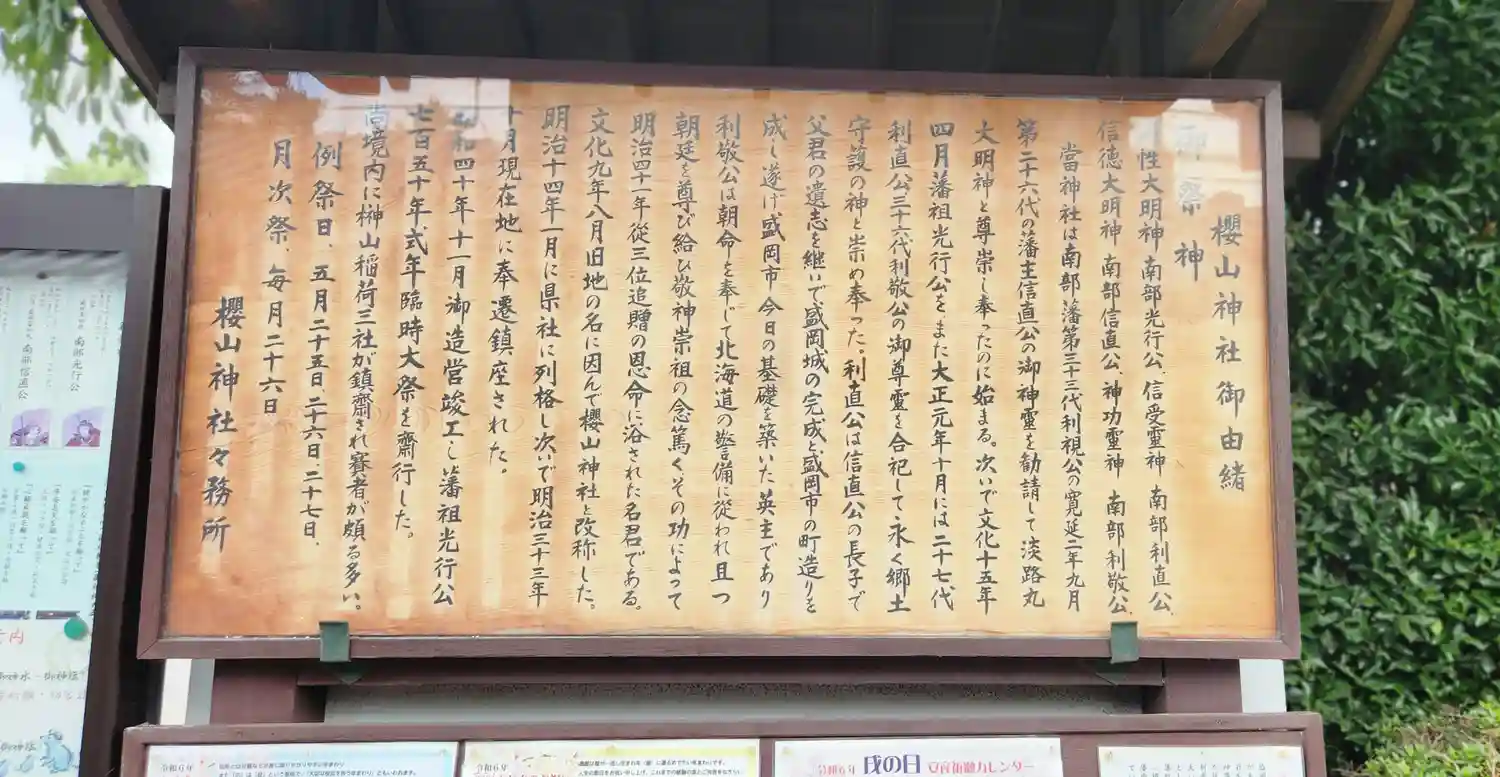 櫻山神社御由緒
御祭神
性大明神 南部光行公、信受靈神 南部利直公、
信徳大明神 南部信直公、神功靈神 南部利敬公、
當神社は南部藩第三十三代利視公の寛延二年九月
第二十六代の藩主信直公の御神靈を勧請して淡路丸
大明神と尊崇し奉ったのに始まる。次いで文化十五年
四月藩祖光行公をまた大正元年十月には二十七代
利直公三十六代利敬公の御尊靈を合祀して永く郷土
守護の神と崇め奉った。利直公は信直公の長子で
父君の遺志を継いで盛岡城の完成と盛岡市の町造りを
成し遂げ盛岡市今日の基礎を築いた英主であり
利敬公は朝命を奉じて北海道の警備に従われ且つ
朝廷を尊び給ひ敬神崇祖の念篤くその功によって
明治四十一年従三位追贈の恩命に浴された名君である。
文化九年八月旧地の名に因んで櫻山神社と改称した。
明治十四年一月に県社に列格し次いで明治三十三年
十月現在地に奉遷鎮座された。
昭和四十年十一月御造営竣工し藩祖光行公
七百五十年式年臨時大祭を齋行した。
尚境内に榊山稲荷三社が鎮齋され賽者が頗る多い。
例祭日、五月二十五日、二十六日、二十七日、
月次祭、毎月二十六日
櫻山神社々務所
南部光行公
南部信直公
令和6年
令和6年
令和6年 戌の日 安産祈願カレンダー